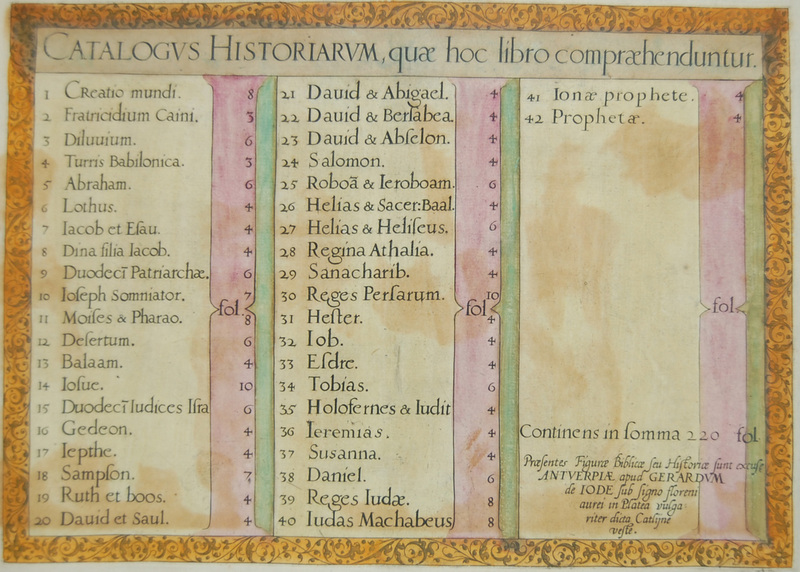 CATALOGVS HISTORIARVM, quæ hoc libro compræhenduntur.
1 Creatio mundi. 8
2 Fratricidium Caini. 3
3 Diluuium. 6
4 Turris Babilonica. 3
5 Abraham. 6
6 Lothus. 4
7 Iacob et Eſau. 4
8 Dina filia Iacob. 4
9 Duodecī Patriarchæ. 6
10 Ioſeph Somniator. 7
fol.
11 Moiſes & Pharao. 8
12 Deſertum. 6
13 Balaam. 4
14 Ioſue. 10
15 Duodecī Iudices Iſra 6
16 Gedeon. 4
17 Iepthe. 4
18 Sampſon. 7
19 Ruth et boos. 4
20 Dauid et Saul. 4
21 Dauid & Abigael. 4
22 Dauid & Berſabea. 4
23 Dauid & Abſelon. 4
24 Salomon. 4
25 Roboā & Ieroboam. 6
26 Helias & Sacer: Baal. 4
27 Helias & Heliſeus. 6
28 Regina Athalia. 4
29 Sanacharib. 4
30 Reges Perſarum. 10
fol
31 Heſter. 4
32 Iob. 4
33 Eſdre. 4
34 Tobias. 6
35 Holofernes & Iudit 4
36 Ieremias. 4
37 Suſanna. 4
38 Daniel. 6
39 Reges Iudæ. 8
40 Iudas Machabeus 8
41 Ionæ prophete. 4
42 Prophetæ. 4
fol
Continens in ſomma 220 fol
Præſentes Figuræ Biblicæ ſeu Hiſtoriæ ſunt excuſe
ANTVERPIÆ apud GERARDVM
de IODE ſub ſigno floreni
aurei in Platea vulga
riter dicta Catlijne
veſte.